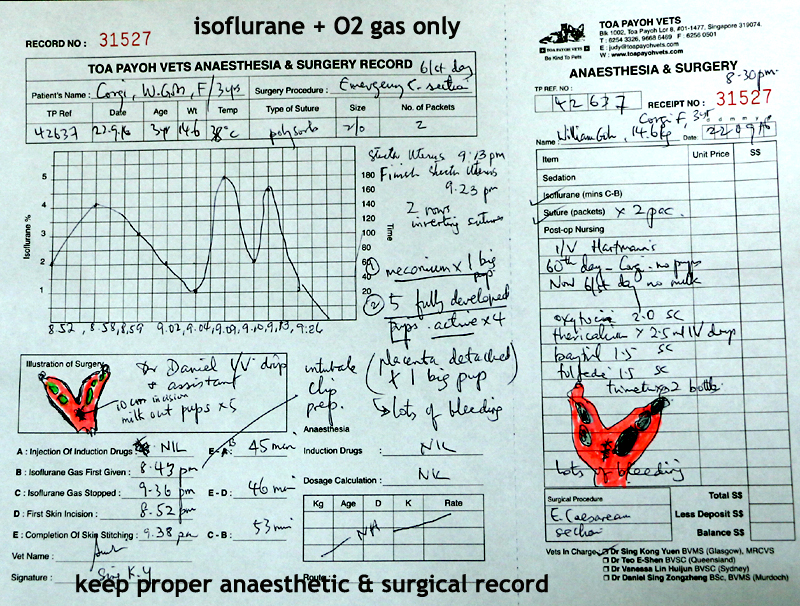 isoflurane + O2 gas only
RECORD NO : 31527
TOA PAYOH VETS ANAESTHESIA & SURGERY RECORD 61st day
Patient's Name : Corgi, W.Goh, F/3yrs Surgery Procedure : Emergency C-section
TP Ref Date Age Wt Temp Type of Suture Size No. of Packets
42637 22.9.16 3yr 14.6 38°C polysorb 2/0 2
5 4 3 2 1
Isoflurane %
180 160 140 120 100 80 60 40 20
Time
8.52, 8.58, 8.59 9.02, 9.04, 9.09, 9.10, 9.13, 9.26
Stitch Uterus 9.13 pm
Finish stitch Uterus
9.23 pm
2 rows
inverting sutures
① meconium x 1 big
pup
② 5 fully developed
pups. active x 4
(Placenta detached
x 1 big pup)
→ lots of bleeding
Illustration of Surgery
Dr Daniel I/V drip
& assistant
10cm incision
milk out pups x5
intubate
clip
prep.
Anaesthesia
A : Injection Of Induction Drugs : NIL E - A : 45 min
B : Isoflurane Gas First Given : 8.43 pm
C : Isoflurane Gas Stopped : 9.36 pm E - D : 46 min
D : First Skin Incision : 8.52 pm
E : Completion Of Skin Stitching : 9.38 pm C - B : 53 min
Vet Name :
Signature : Sing K.Y
Induction Drugs : NIL
Dosage Calculation : NIL
Kg Age D K Rate
NA
Route :
keep proper anaesthetic & surgical record
TOA PAYOH VETS
Blk 1002, Toa Payoh Lor 8, #01-1477, Singapore 319074.
T : 6254 3326, 9668 6469 F : 6256 0501
E : judy@toapayohvets.com
W : www.toapayohvets.com
TOA PAYOH VETS
Be Kind To Pets
ANAESTHESIA & SURGERY
8-30pm
TP REF. NO :
42637 RECEIPT NO : 31527
Corgi F, 3yr
d d m m y y
Name : William Goh, 14.6kg Date: 220916
Item Unit Price S$
Sedation
Isoflurane (mins C-B)
Suture (packets) x 2 pac.
Post-op Nursing
I/V Hartmann's
60th day - Corgi - no pups
Now 61st day no milk
oxytocin 2.0 SC
baytril 1.5 SC
tolfedine 1.5 SC
x 2 bottle
lots of bleeding
Surgical Procedure
E. Caesarean
section
Total S$
Less Deposit S$
Balance S$
Vets In Charge : Dr Sing Kong Yuen BVMS (Glasgow), MRCVS
Dr Teo E-Shen BVSC (Queensland)
Dr Vanessa Lin Huijun BVSC (Sydney)
Dr Daniel Sing Zongzheng BSc, BVMS (Murdoch)